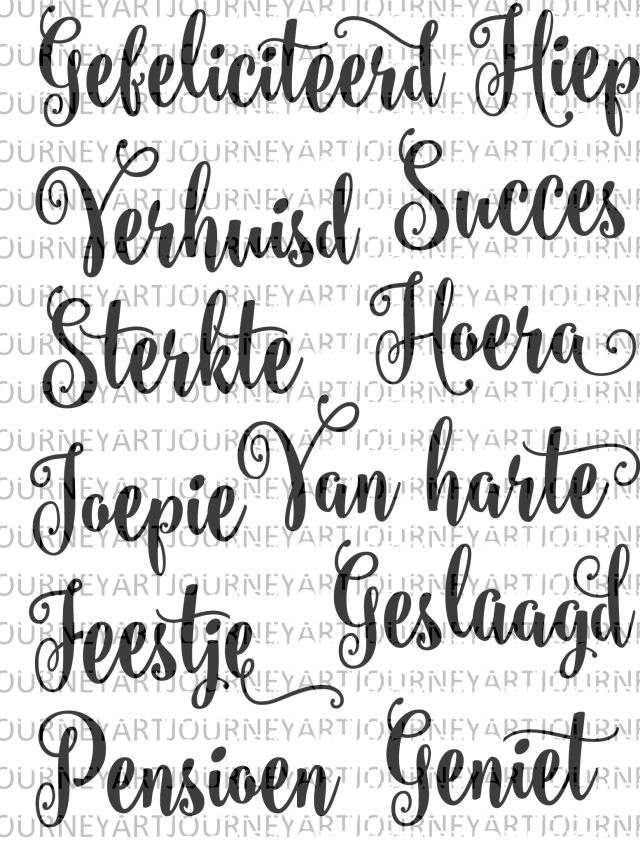 Gefeliciteerd Hiep
Verhuisd Succes
Sterkte Hoera
Joepie Van harte
Feestje Geslaagd
Pensioen Geniet
JOURNEYARTJOURNEYARTJOURNEYARTJOURNEYART